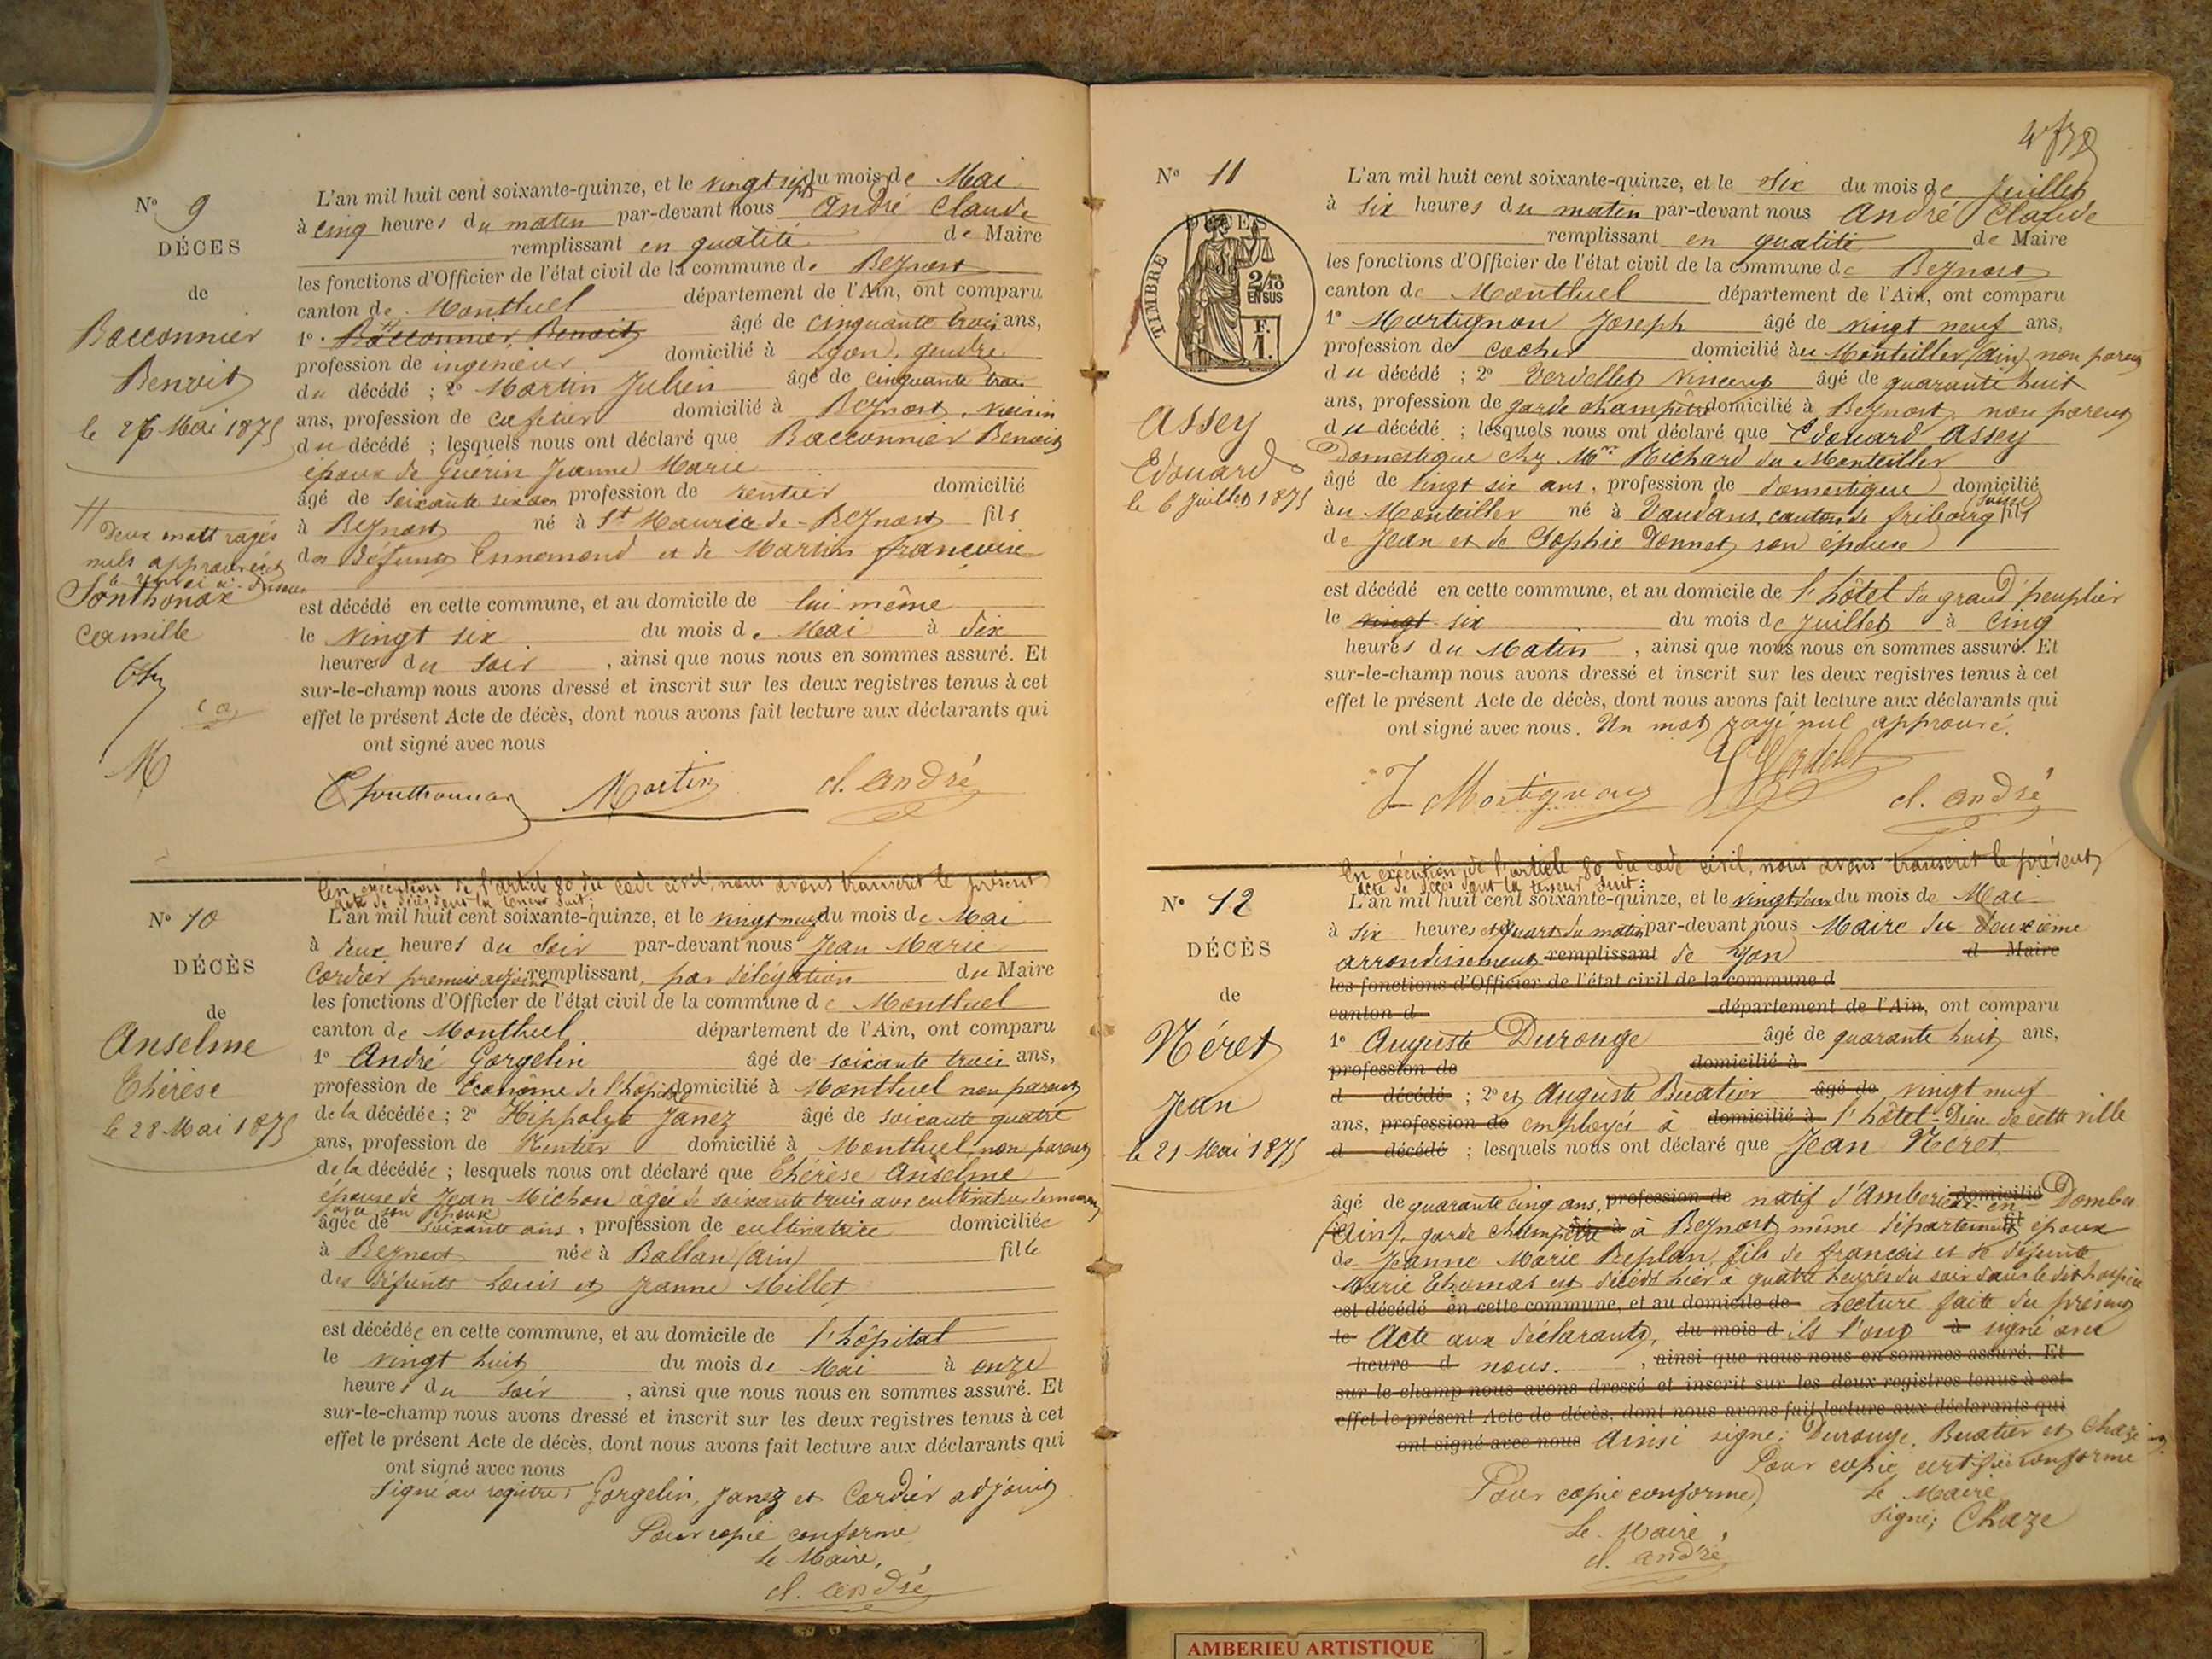 N° 9
DÉCES
de
Bacconnier
Benoit
le 26 Mai 1875
L'an mil huit cent soixante-quinze, et le vingt sept du mois de Mai
à cinq heures du matin par-devant nous André Claude
remplissant en qualité de Maire
les fonctions d'Officier de l'état civil de la commune de Beynost
canton de Montluel département de l'Ain, ont comparu
1° Bacconnier Benoit âgé de cinquante trois ans,
profession de ingenieur domicilié à Lyon, gendre
du décédé ; 2° Martin Julien âgé de cinquante trois
ans, profession de cafetier domicilié à Beynost, voisin
du décédé ; lesquels nous ont déclaré que Bacconnier Benoit
époux de Guérin Jeanne Marie
âgé de soixante six ans profession de rentier domicilié
à Beynost né à St Maurice de Beynost fils
des défunts Ennemond et de Martin françoise
est décédé en cette commune, et au domicile de lui même
le vingt six du mois de Mai à dix
heures du soir , ainsi que nous nous en sommes assuré. Et
sur-le-champ nous avons dressé et inscrit sur les deux registres tenus à cet
effet le présent Acte de décès, dont nous avons fait lecture aux déclarants qui
ont signé avec nous
Martin cl. andré
Deux mott rayés
nuls approuvés
& renvoi ci-dessus
Sonthonax
Camille
M
En exécution de l'article 80 du code civil, nous avons transcrit le présent
acte de décès dont la teneur suit :
N° 10
DÉCÈS
de
Anselme
Thérèse
le 28 Mai 1875
L'an mil huit cent soixante-quinze, et le vingt neuf du mois de Mai
à deux heures du soir par-devant nous Jean Marie
Cordier premier adjoint remplissant par délégation du Maire
les fonctions d'Officier de l'état civil de la commune de Montluel
canton de Montluel département de l'Ain, ont comparu
1° André Gorgelin âgé de soixante trois ans,
profession de Econome de l'hôpital domicilié à Montluel non parent
de la décédée ; 2° Hippolyte Janez âgé de soixante quatre
ans, profession de Rentier domicilié à Montluel, non parent
de la décédée ; lesquels nous ont déclaré que Thérèse Anselme
épouse de Jean Michon âgé de soixante trois ans cultivateur demeurant
avec son épouse
âgée de soixante ans , profession de cultivatrice domiciliée
à Beynost née à Ballan (ain) fille
des défunts Louis et Jeanne Millet
est décédée en cette commune, et au domicile de l'hôpital
le vingt huit du mois de Mai à onze
heures du soir , ainsi que nous nous en sommes assuré. Et
sur-le-champ nous avons dressé et inscrit sur les deux registres tenus à cet
effet le présent Acte de décès, dont nous avons fait lecture aux déclarants qui
ont signé avec nous
Signé au registre : Gorgelin, Janez et Cordier adjoint
Pour copie conforme
Le Maire,
cl. andré
N° 11
DÉCÈS
TIMBRE
2/10
EN SUS
F.
1.
Assey
Edouard
le 6 Juillet 1875
L'an mil huit cent soixante-quinze, et le Six du mois de Juillet
à six heures du matin par-devant nous André Claude
remplissant en qualité de Maire
les fonctions d'Officier de l'état civil de la commune de Beynost
canton de Montluel département de l'Ain, ont comparu
1° Martignon Joseph âgé de vingt neuf ans,
profession de cocher domicilié au Montellier (ain) non parent
du décédé ; 2° Verdellet Vincent âgé de quarante huit
ans, profession de garde champêtre domicilié à Beynost, non parent
du décédé ; lesquels nous ont déclaré que Edouard Assey
Domestique chez Mr Richard du Monteiller
âgé de vingt six ans , profession de domestique domicilié
au Monteiller né à Vaudans, canton de fribourg suisse fils
de Jean et de Sophie Donnet son épouse
est décédé en cette commune, et au domicile de l'hôtel du grand peuplier
le vingt six du mois de juillet à cinq
heures du Matin , ainsi que nous nous en sommes assuré. Et
sur-le-champ nous avons dressé et inscrit sur les deux registres tenus à cet
effet le présent Acte de décès, dont nous avons fait lecture aux déclarants qui
ont signé avec nous. Un mot rayé nul approuvé.
J Martignon Verdelet cl. andré
En exécution de l'article 80 du code civil, nous avons transcrit le présent
acte de décès dont la teneur suit :
N° 12
DÉCÈS
de
Néret
Jean
le 21 Mai 1875
L'an mil huit cent soixante-quinze, et le vingt deux du mois de Mai
à six heures et quart du matin par-devant nous Maire du deuxième
arrondissement remplissant de Lyon d Maire
les fonctions d'Officier de l'état civil de la commune d
canton d département de l'Ain, ont comparu
1° Auguste Durouge âgé de quarante huit ans,
profession de domicilié à
d décédé ; 2° et Auguste Buatier âgé de vingt neuf
ans, profession de employés à domicilié à l'hôtel-Dieu de cette ville
d décédé ; lesquels nous ont déclaré que Jean Néret
âgé de quarante cinq ans, profession de natif d'Amberieux domicilié en Dombes
(Ain), garde champêtre né à à Beynost, même département époux
de Jeanne Marie Beplan, fils de francois et de défunte
Marie Thomas est décédé hier à quatre heures du soir dans le dit hospice
est décédé en cette commune, et au domicile de Lecture faite du présent
le Acte aux déclarants, du mois d ils l'ont à signé avec
heure d nous. , ainsi que nous nous en sommes assuré. Et
sur-le-champ nous avons dressé et inscrit sur les deux registres tenus à cet
effet le présent Acte de décès, dont nous avons fait lecture aux déclarants qui
ont signé avec nous Ainsi signé: Durouge, Buatier et Chaze
Pour copie certifiée conforme
Le Maire
Signé; Chaze
Pour copie conforme
Le Maire,
cl. andré
AMBERIEU ARTISTIQUE